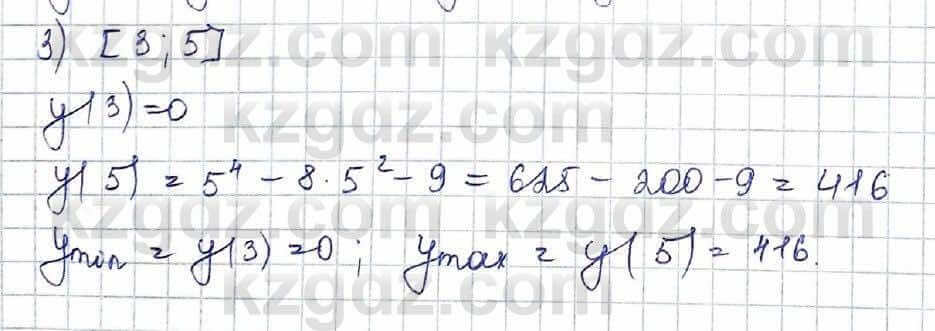 3) [3; 5]
y(3) = 0
y(5) = 5⁴ - 8 · 5² - 9 = 625 - 200 - 9 = 416
y min = y(3) = 0; y max = y(5) = 416.
kzgdz.com kzgdz.com
kzgdz.com
kzgdz.com kzgdz.com
kzgdz.com